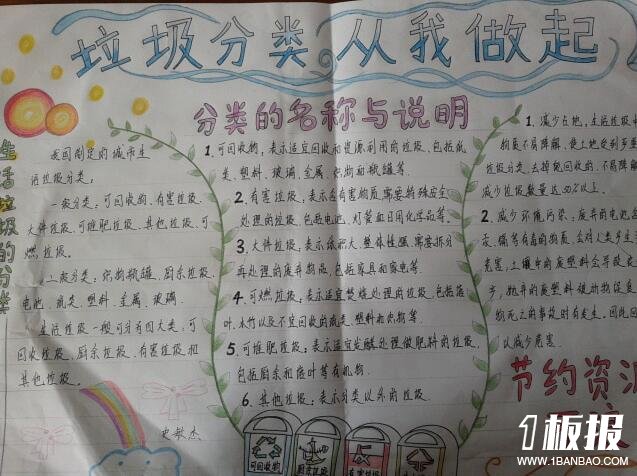 垃圾分类 从我做起
生活垃圾的分类
我国制定的城市生
活垃圾分类:
一级分类:可回收物、有害垃圾、
大件垃圾、可堆肥垃圾、其他垃圾、可
燃垃圾.
二级分类:织物瓶罐、厨余垃圾、
电池、纸类、塑料、金属、玻璃.
生活垃圾一般可分为四大类:可
回收垃圾、厨余垃圾、有害垃圾和
其他垃圾.
分类的名称与说明
1.可回收物,表示适宜回收和资源利用的垃圾,包括纸
类、塑料、玻璃、金属、织物和瓶罐等.
2.有害垃圾,表示含有害物质,需要特殊安全
处理的垃圾,包括电池、灯管和日用化学品等.
3.大件垃圾:表示体积大、整体性强,需要拆分
再处理的废弃物品,包括家具和家电等.
4.可燃垃圾:表示适宜焚烧处理的垃圾,包括落
叶、木竹以及不宜回收的纸类、塑料和织物等.
5.可堆肥垃圾:表示适宜发酵处理做肥料的垃圾,
包括厨余和落叶等有机物.
6.其他垃圾:表示分类以外的垃圾.
1.减少占地,生活垃圾中
物质不易降解,使土地受到
垃圾分类,去掉能回收的、不易降
减少垃圾数量达50%以上.
2.减少环境污染:废弃的电池含
汞、镉等有毒的物质,会对人类产生
危害,土壤中的废塑料会导致
少,抛弃的废塑料被动物误
物死亡的事故时有发生.因此回
以减少危害.
节约资源
可回收物
厨余垃圾
有害垃圾
1板报
WWW.1BANBAO.COM